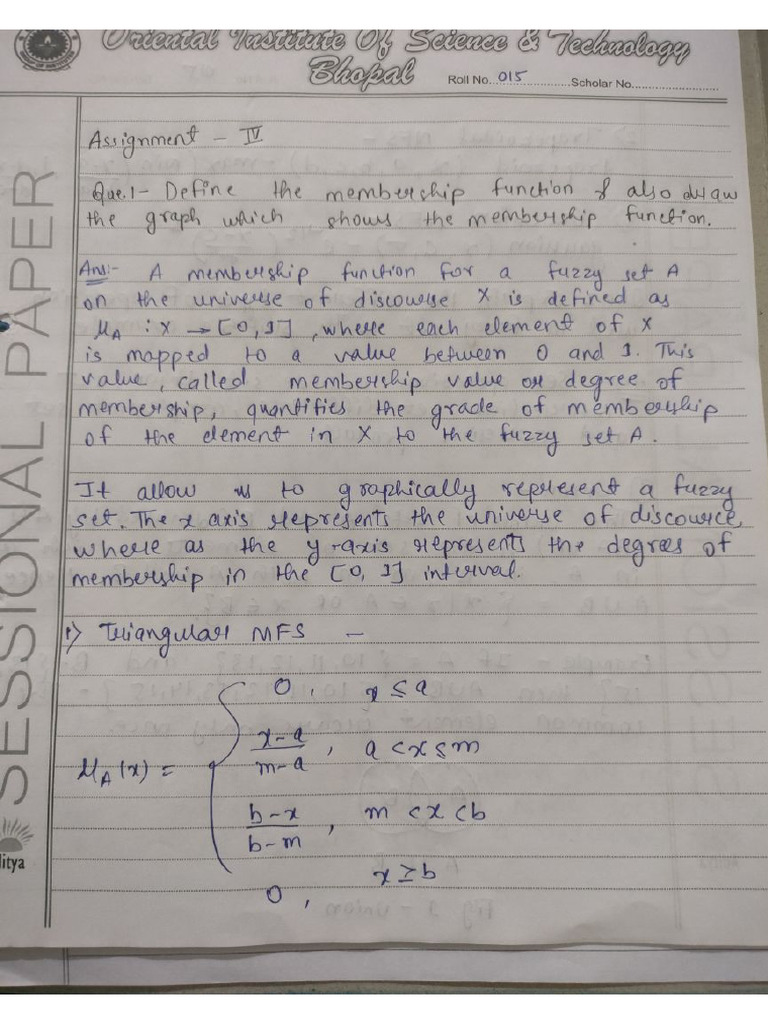 Oriental Institute Of Science & Technology
Bhopal
Roll No. 015 Scholar No.
SESSIONAL PAPER
Assignment - IV
Que.1- Define the membership function & also draw
the graph which shows the membership function.
Ans:- A membership function for a fuzzy set A
on the universe of discourse X is defined as
μA : X → [0, 1], where each element of X
is mapped to a value between 0 and 1. This
value, called membership value or degree of
membership, quantifies the grade of membership
of the element in X to the fuzzy set A.
It allow us to graphically represent a fuzzy
set. The x axis represents the universe of discource,
where as the y-axis represents the degrees of
membership in the [0, 1] interval.
1) Triangular MFS -
0, x ≤ a
x-a / m-a, a < x ≤ m
μA(x) =
b-x / b-m, m < x < b
0, x ≥ b